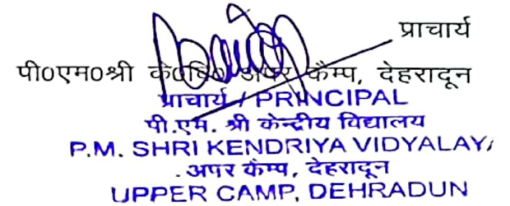 प्राचार्य
पी0एम0श्री के0वि0 अपर कैम्प, देहरादून
प्राचार्य / PRINCIPAL
पी.एम. श्री केन्द्रीय विद्यालय
P.M. SHRI KENDRIYA VIDYALAY
अपर कैम्प, देहरादून
UPPER CAMP, DEHRADUN